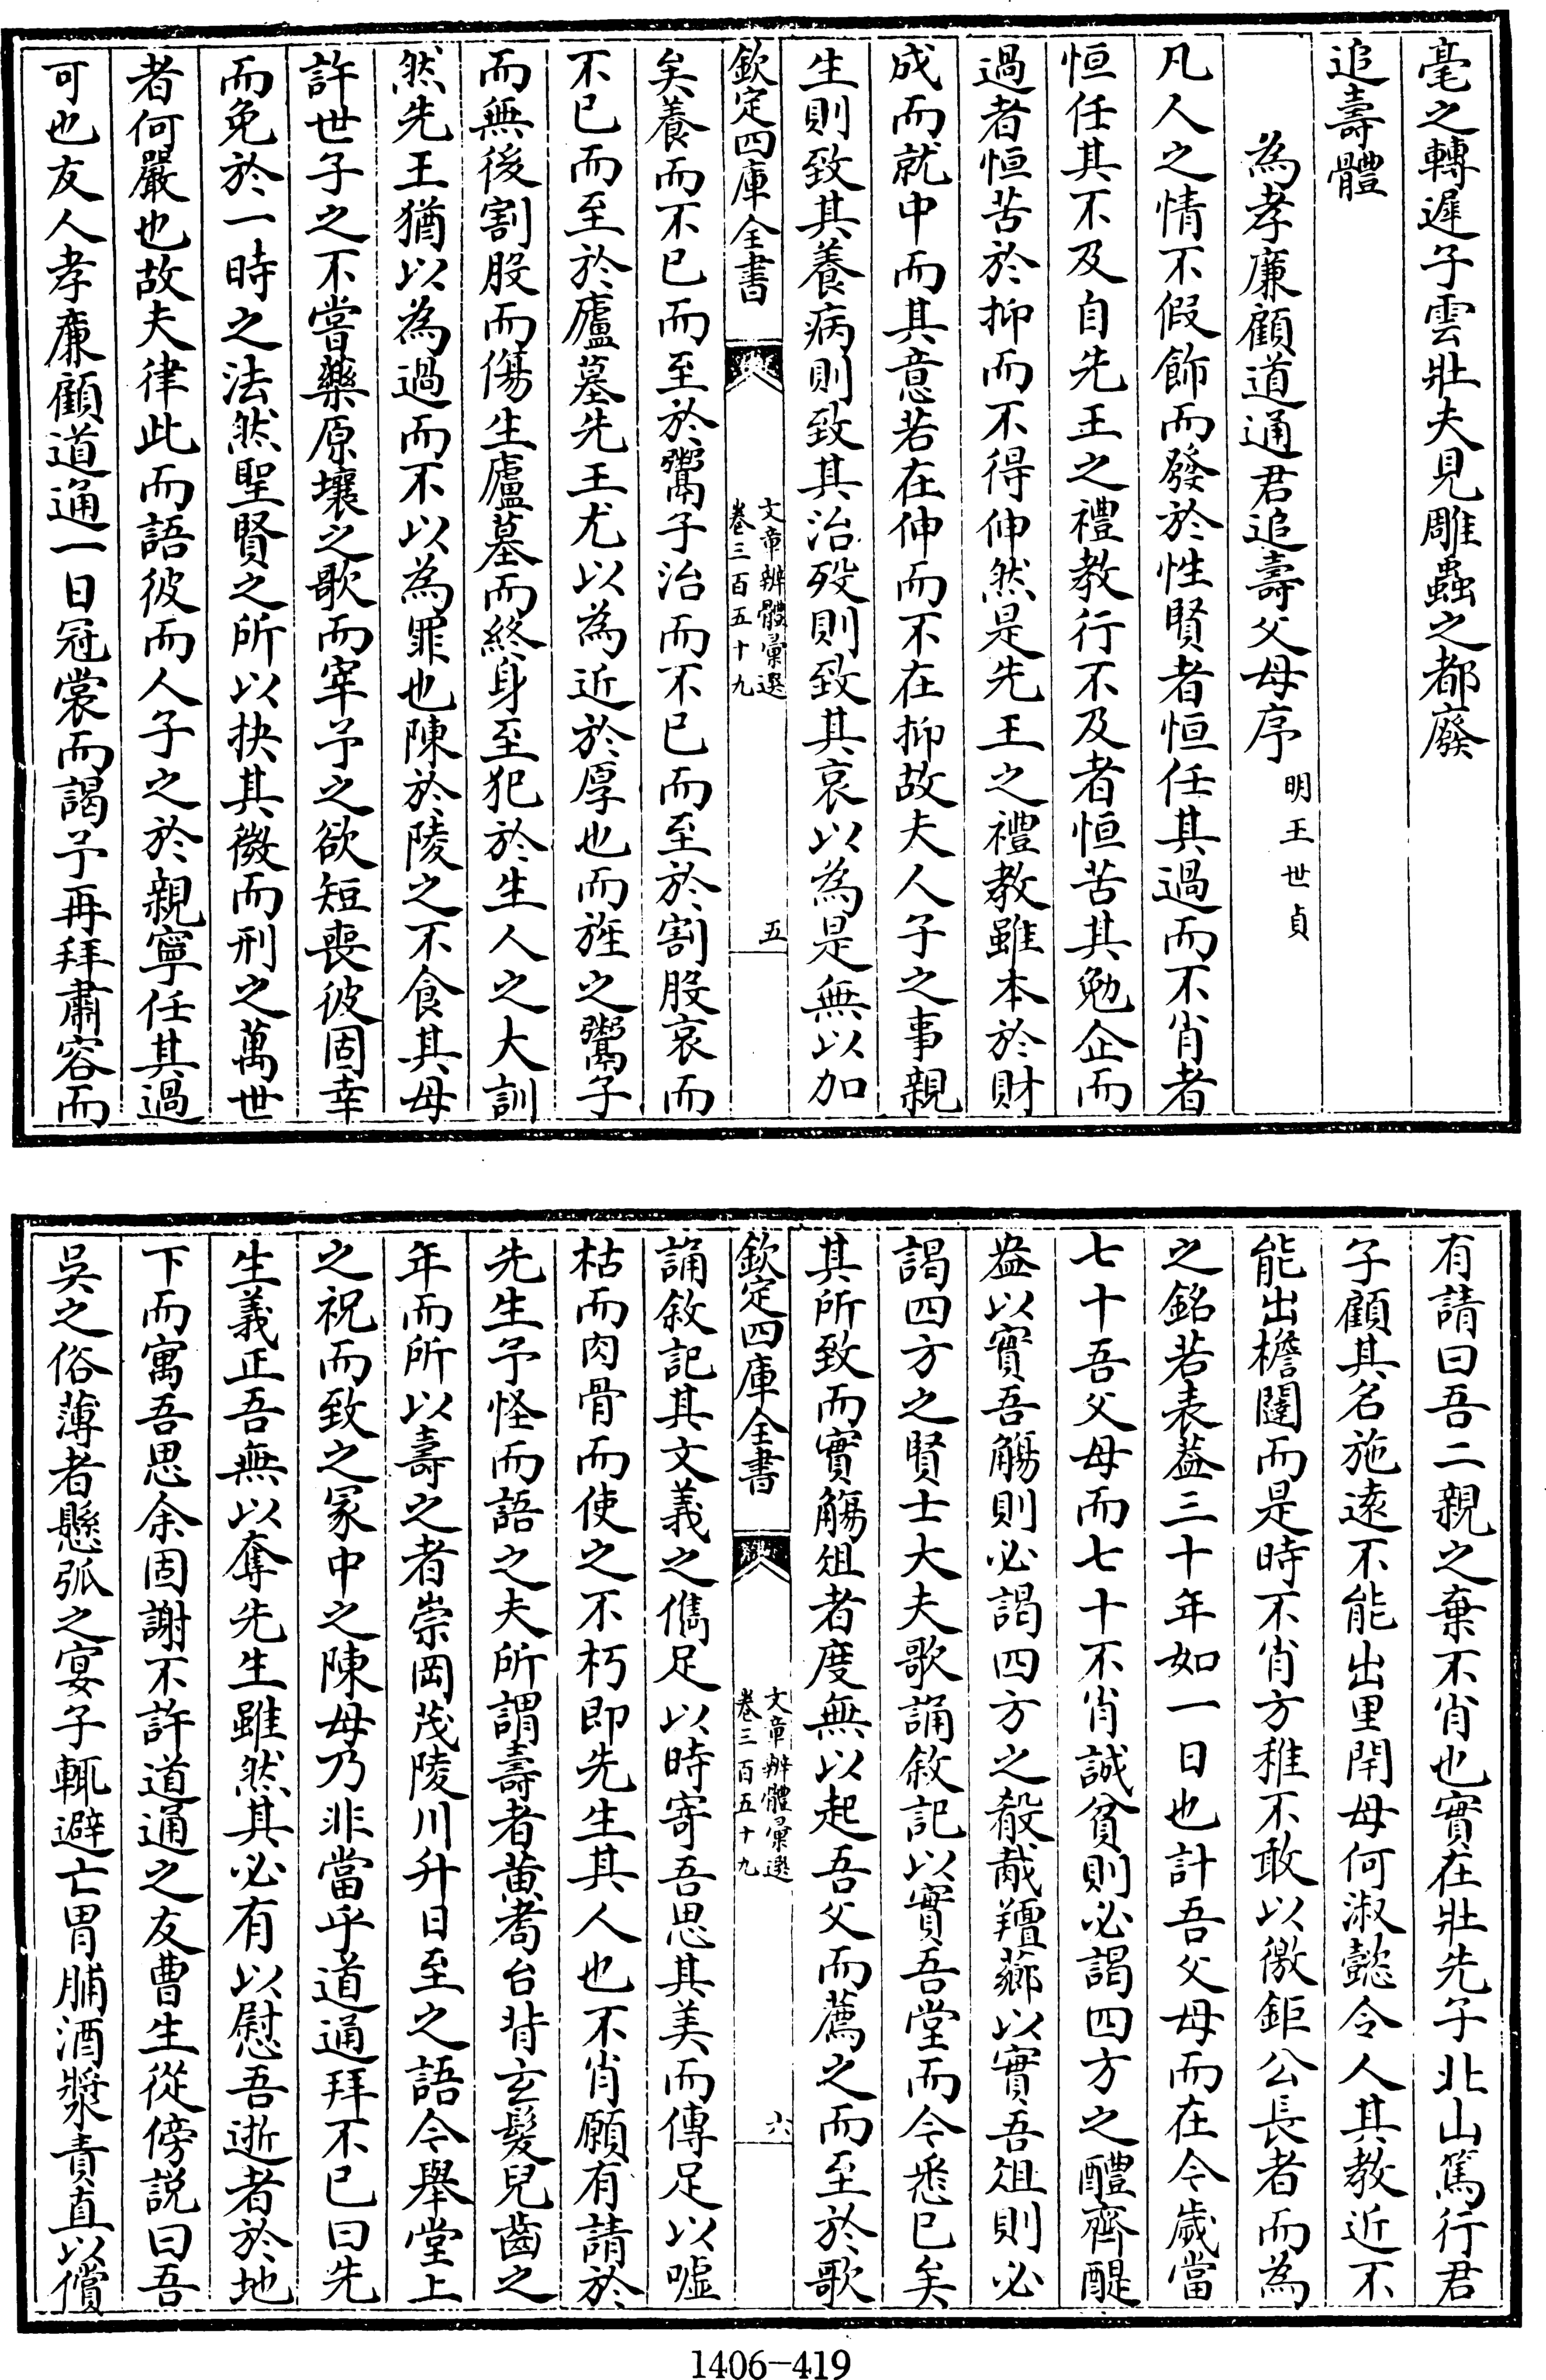 毫之轉遲子雲壯夫見雕蟲之都廢
追壽體
為孝廉顧道通君追壽父母序
明王世貞
凡人之情不假飾而發於性賢者恒任其過而不肖者
恒任其不及自先王之禮教行不及者恒苦其勉企而
過者恒苦於抑而不得伸然是先王之禮教雖本於財
成而就中而其意若在伸而不在抑故夫人子之事親
生則致其養病則致其治歿則致其哀以為是無以加
欽定四庫全書
文章辨體彙選
卷三百五十九
五
矣養而不已而至於鬻子治而不已而至於割股哀而
不已而至於廬墓先王尤以為近於厚也而旌之鬻子
而無後割股而傷生廬墓而終身至犯於生人之大訓
然先王猶以為過而不以為罪也陳於陵之不食其母
許世子之不嘗藥原壤之歌而宰予之欲短喪彼固幸
而免於一時之法然聖賢之所以抉其微而刑之萬世
者何嚴也故夫律此而語彼而人子之於親寧任其過
可也友人孝廉顧道通一日冠裳而謁予再拜肅容而
有請曰吾二親之棄不肖也實在壯先子北山篤行君
子顧其名施遠不能出里閈母何淑懿令人其教近不
能出檐闥而是時不肖方稚不敢以徼鉅公長者而為
之銘若表葢三十年如一日也計吾父母而在今歲當
七十吾父母而七十不肖誠貧則必謁四方之醴齊醍
盎以實吾觴則必謁四方之殽胾羶薌以實吾俎則必
謁四方之賢士大夫歌誦敘記以實吾堂而今悉已矣
其所致而實觴俎者度無以起吾父而薦之而至於歌
欽定四庫全書
文章辨體彙選
卷三百五十九
六
誦敘記其文義之儁足以時寄吾思其美而傳足以噓
枯而肉骨而使之不朽即先生其人也不肖願有請於
先生予怪而語之夫所謂壽者黃耉台背玄髮兒齒之
年而所以壽之者崇岡茂陵川升日至之語今舉堂上
之祝而致之冢中之陳毋乃非當乎道通拜不已曰先
生義正吾無以奪先生雖然其必有以慰吾逝者於地
下而寓吾思余固謝不許道通之友曹生從傍説曰吾
吳之俗薄者懸弧之宴子輒避亡胃脯酒漿責直以償
1406-419